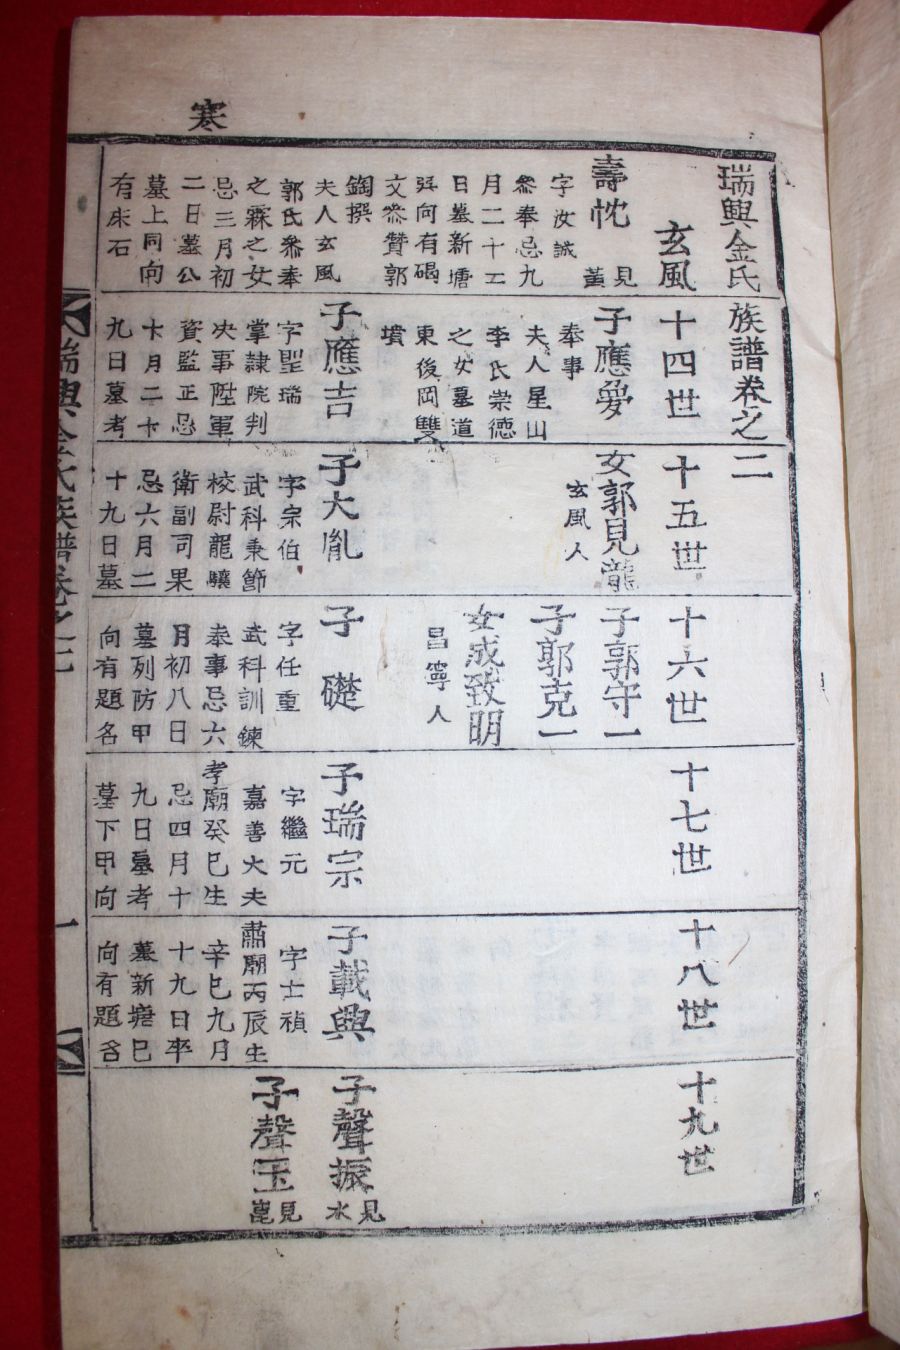 寒
瑞興金氏族譜卷之二
玄風
壽忱
見
菫
字汝誠
叅奉忌九
月二十五
日墓新塘
巽向有碣
文叅贊郭
鋾撰
夫人玄風
郭氏叅奉
之霖之女
忌三月初
二日墓公
墓上同向
有床石
十四世
子應夢
奉事
夫人星山
李氏崇德
之女墓道
東後岡雙
墳
子應吉
字聖瑞
掌隷院判
决事陞軍
資監正忌
十月二十
九日墓考
十五世
女郭見龍
玄風人
子大胤
字宗伯
武科秉節
校尉龍驤
衛副司果
忌六月二
十九日墓
十六世
子郭守一
子郭克一
女成致明
昌寧人
子礎
字任重
武科訓鍊
奉事忌六
月初八日
墓列防甲
向有題名
十七世
子瑞宗
字繼元
嘉善大夫
孝廟癸巳生
忌四月十
九日墓考
墓下甲向
十八世
子載興
字士禎
肅廟丙辰生
辛巳九月
十九日卒
墓新塘巳
向有題含
十九世
子聲振
見
水
子聲玉
見
崑
瑞興金氏族譜卷之二
一